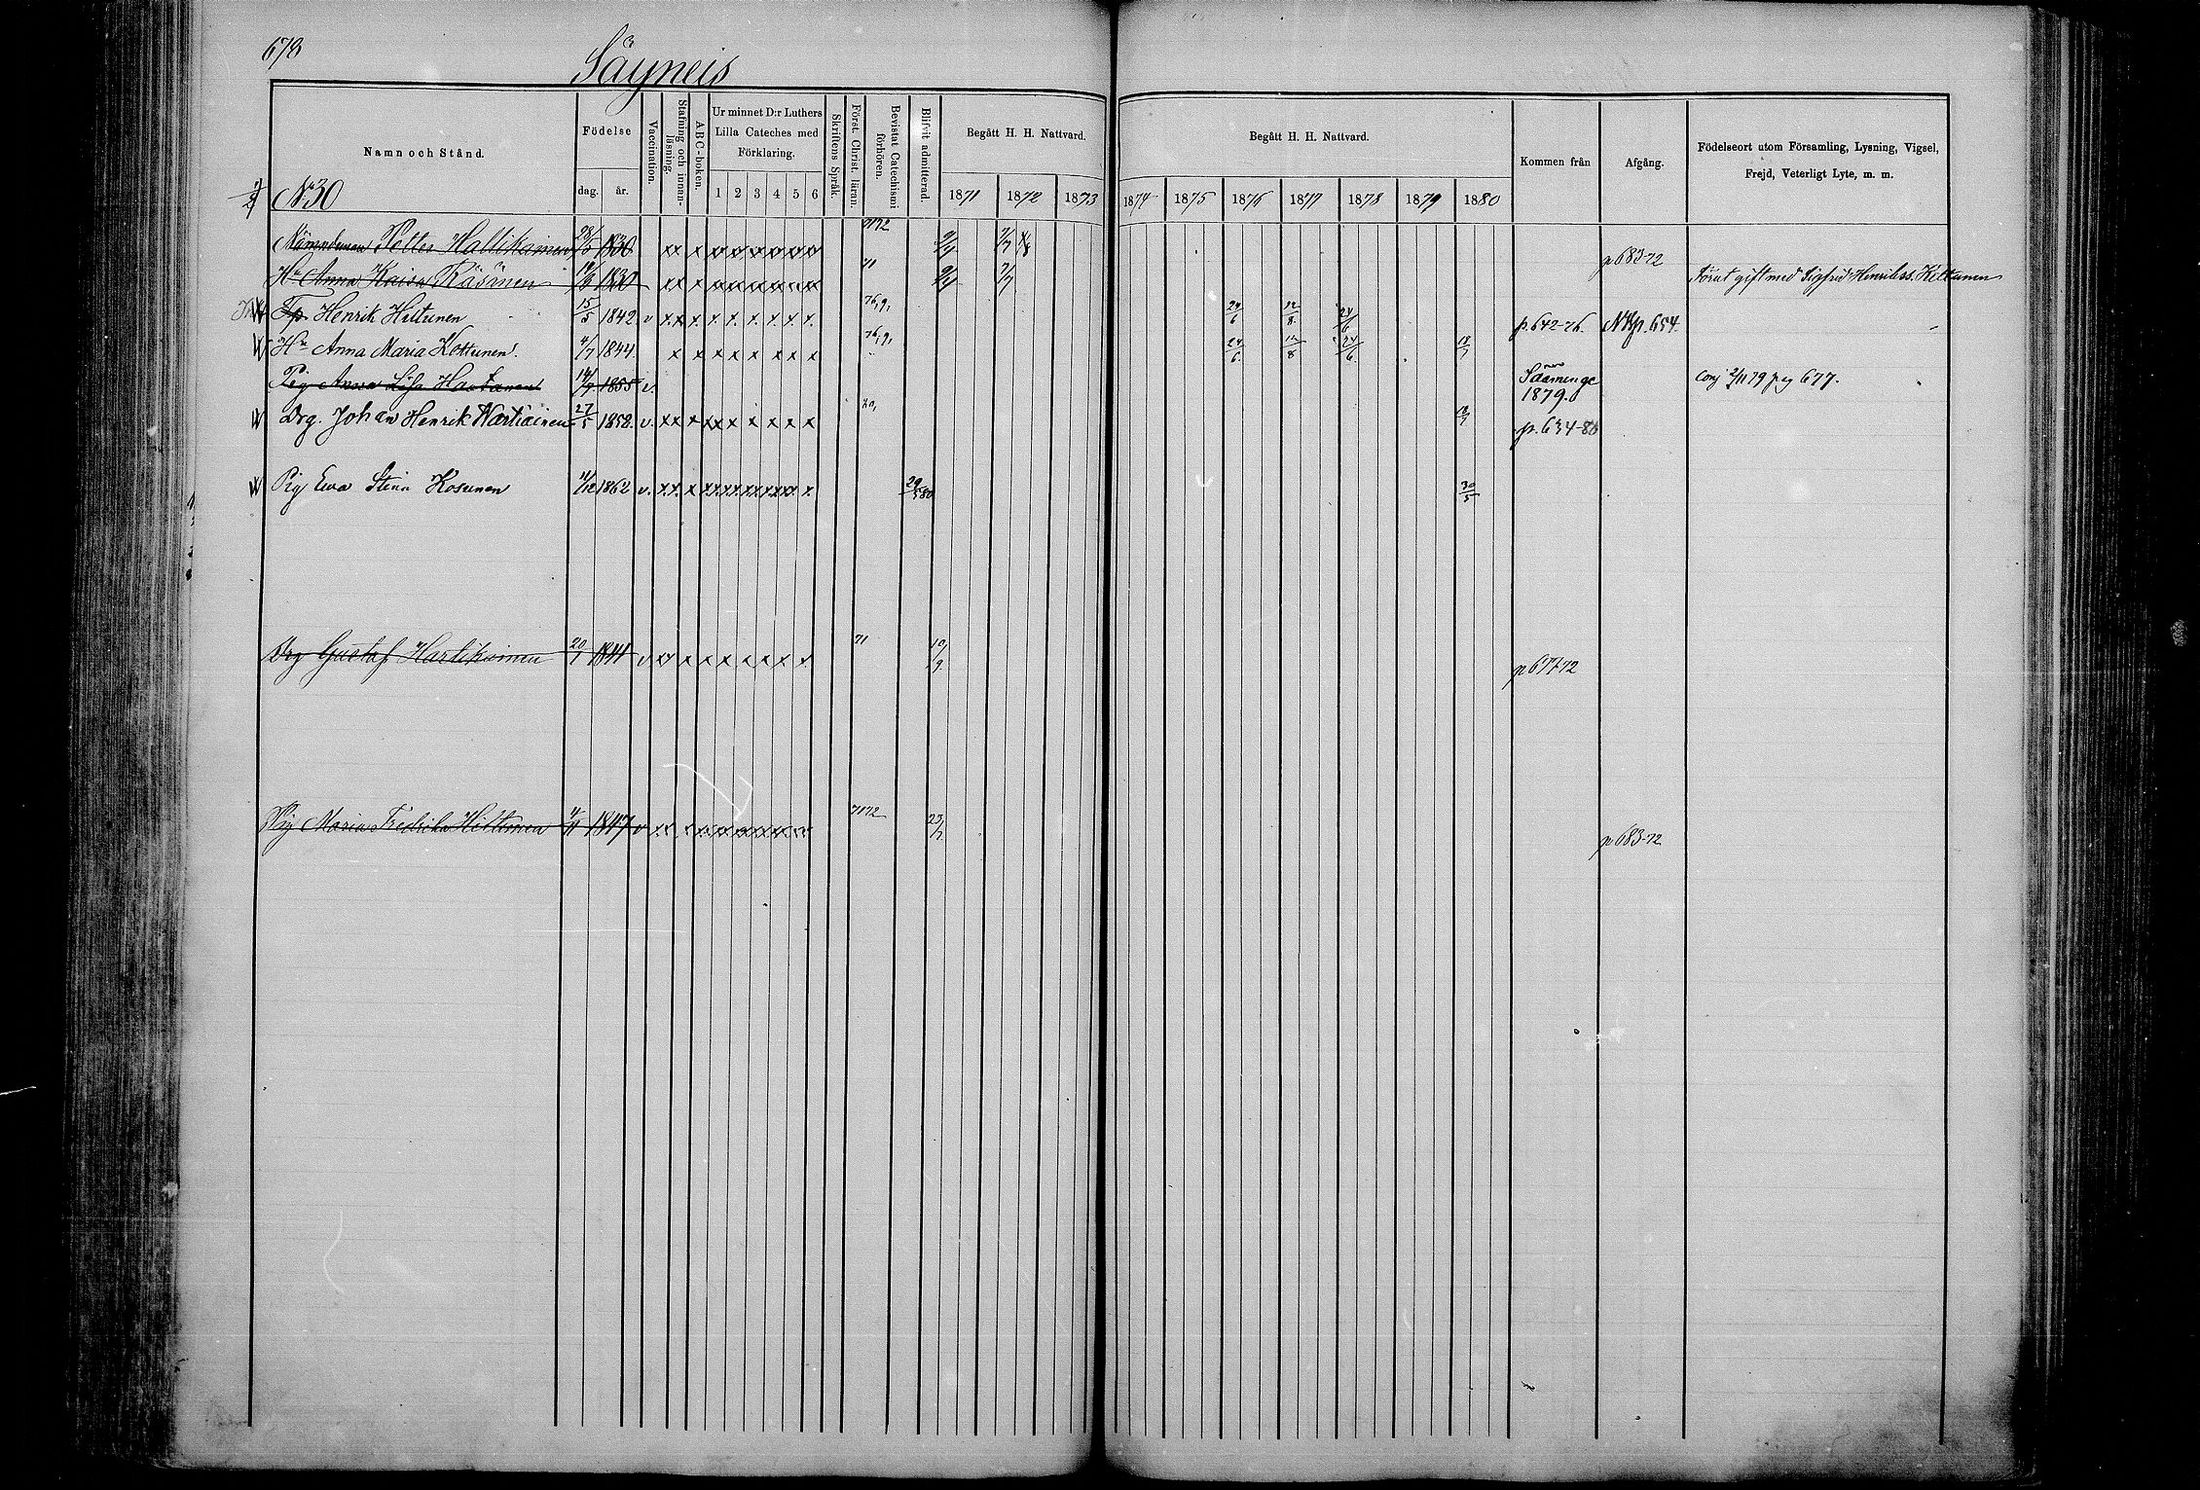 678
Säyneis
Namn och Stånd.
Födelse
dag. år.
Vaccination.
Stafning och innanläsning.
A B C-boken.
Ur minnet D:r Luthers Lilla Cateches med Förklaring.
1 2 3 4 5 6
Skriftens Språk.
Först. Christ. läran.
Bevistat Catechismi förhören.
Blifvit admitterad.
Begått H. H. Nattvard.
1871 1872 1873
Begått H. H. Nattvard.
1874 1875 1876 1877 1878 1879 1880
Kommen från
Afgång.
Födelseort utom Församling, Lysning, Vigsel, Frejd, Veterligt Lyte, m. m.
№ 30
Petter Hallikainen 28/5 1830 7172 9/4 7/7 p 683-72
Hu Anna Kaisa Räsänen 1830 71 9/4 7/7 förut gift med Sigfrid Henrikss. Hiltunen
Henrik Hiltunen 15/5 1842 v 76,9, 24/6 12/8 24/6 p. 642-76. p. 654.
Hu Anna Maria Kettunen. 4/7 1844 76,9, 24/6 12/8 24/6 18/7
Pig Anna Lisa Hautanen 14/9 1855 v. Säminge 1879. 2/11 79 pag 677.
Drg. Johan Henrik Wartiainen 27/5 1858. v. 80, 18/7 p. 634-80
Pig Ewa Stina Kosunen 4/12 1862 v. 29/5 80 30/5
Drg Gustaf Hartikainen 20/1 1841 v 71 10/9 p 677-72
Pig Maria Fredrika Hiltunen 4/11 1847 v 7172 23/7 p 683-72